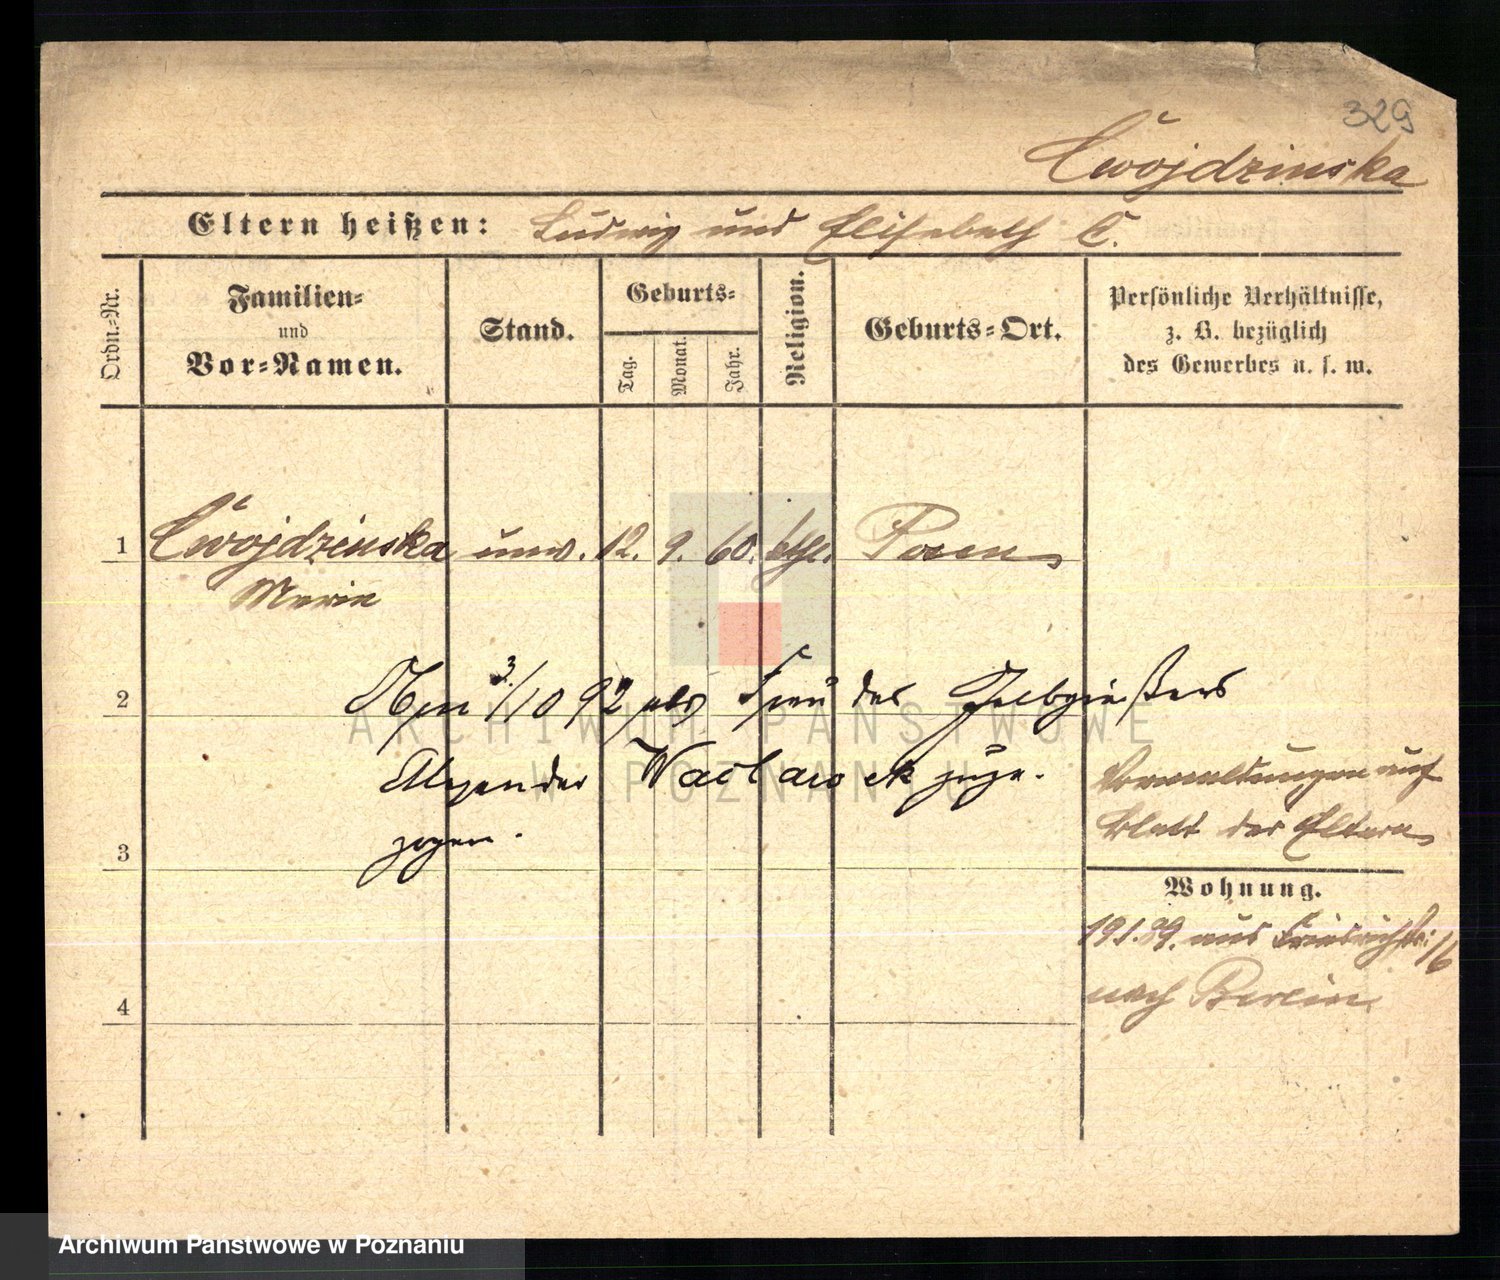 329
Cwojdzinska
Eltern heißen: Ludwig und Elisabeth C.
Ordn.-Nr.
Familien-
und
Vor-Namen.
Stand.
Geburts-
Tag.
Monat.
Jahr.
Religion.
Geburts-Ort.
Persönliche Verhältnisse,
z. B. bezüglich
des Gewerbes u. s. w.
1 Cwojdzinska unv. 12. 9. 60. kthl. Posen
Marie
2 3/10 92 als Frau des Gelbgießers
Alexander Waclawek zuge-
zogen.
auf
Blatt der Eltern
3
Wohnung.
19.1.89. aus Friedrichstr: 16
nach Berlin.
4
ARCHIWUM PAŃSTWOWE
W POZNANIU
Archiwum Państwowe w Poznaniu